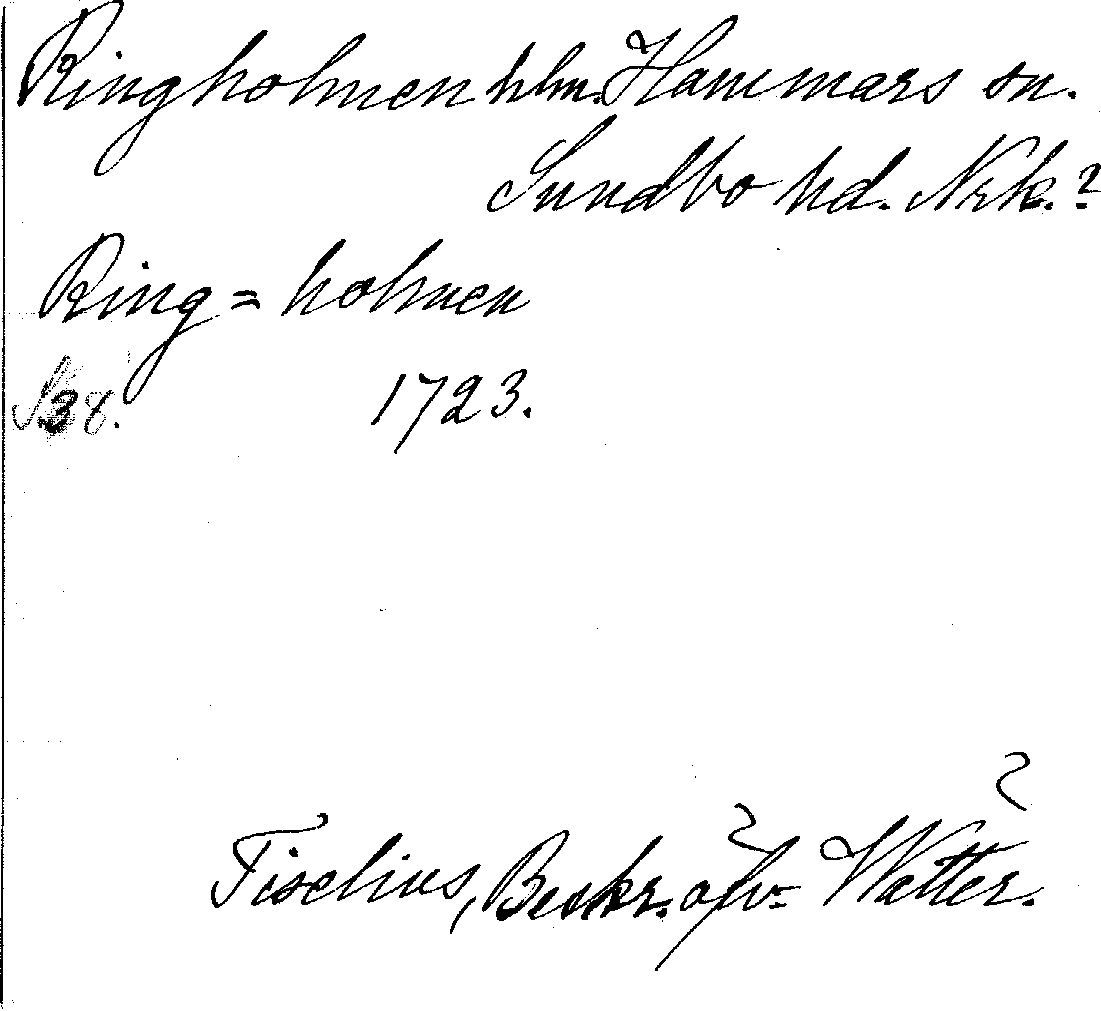 Ringholmen hlm. Hammars sn.
Sundbo hd. Nrk.?
Ring=holmen
S. 38. 1723.
Tiselius, Beskr. öfv= Wätter.